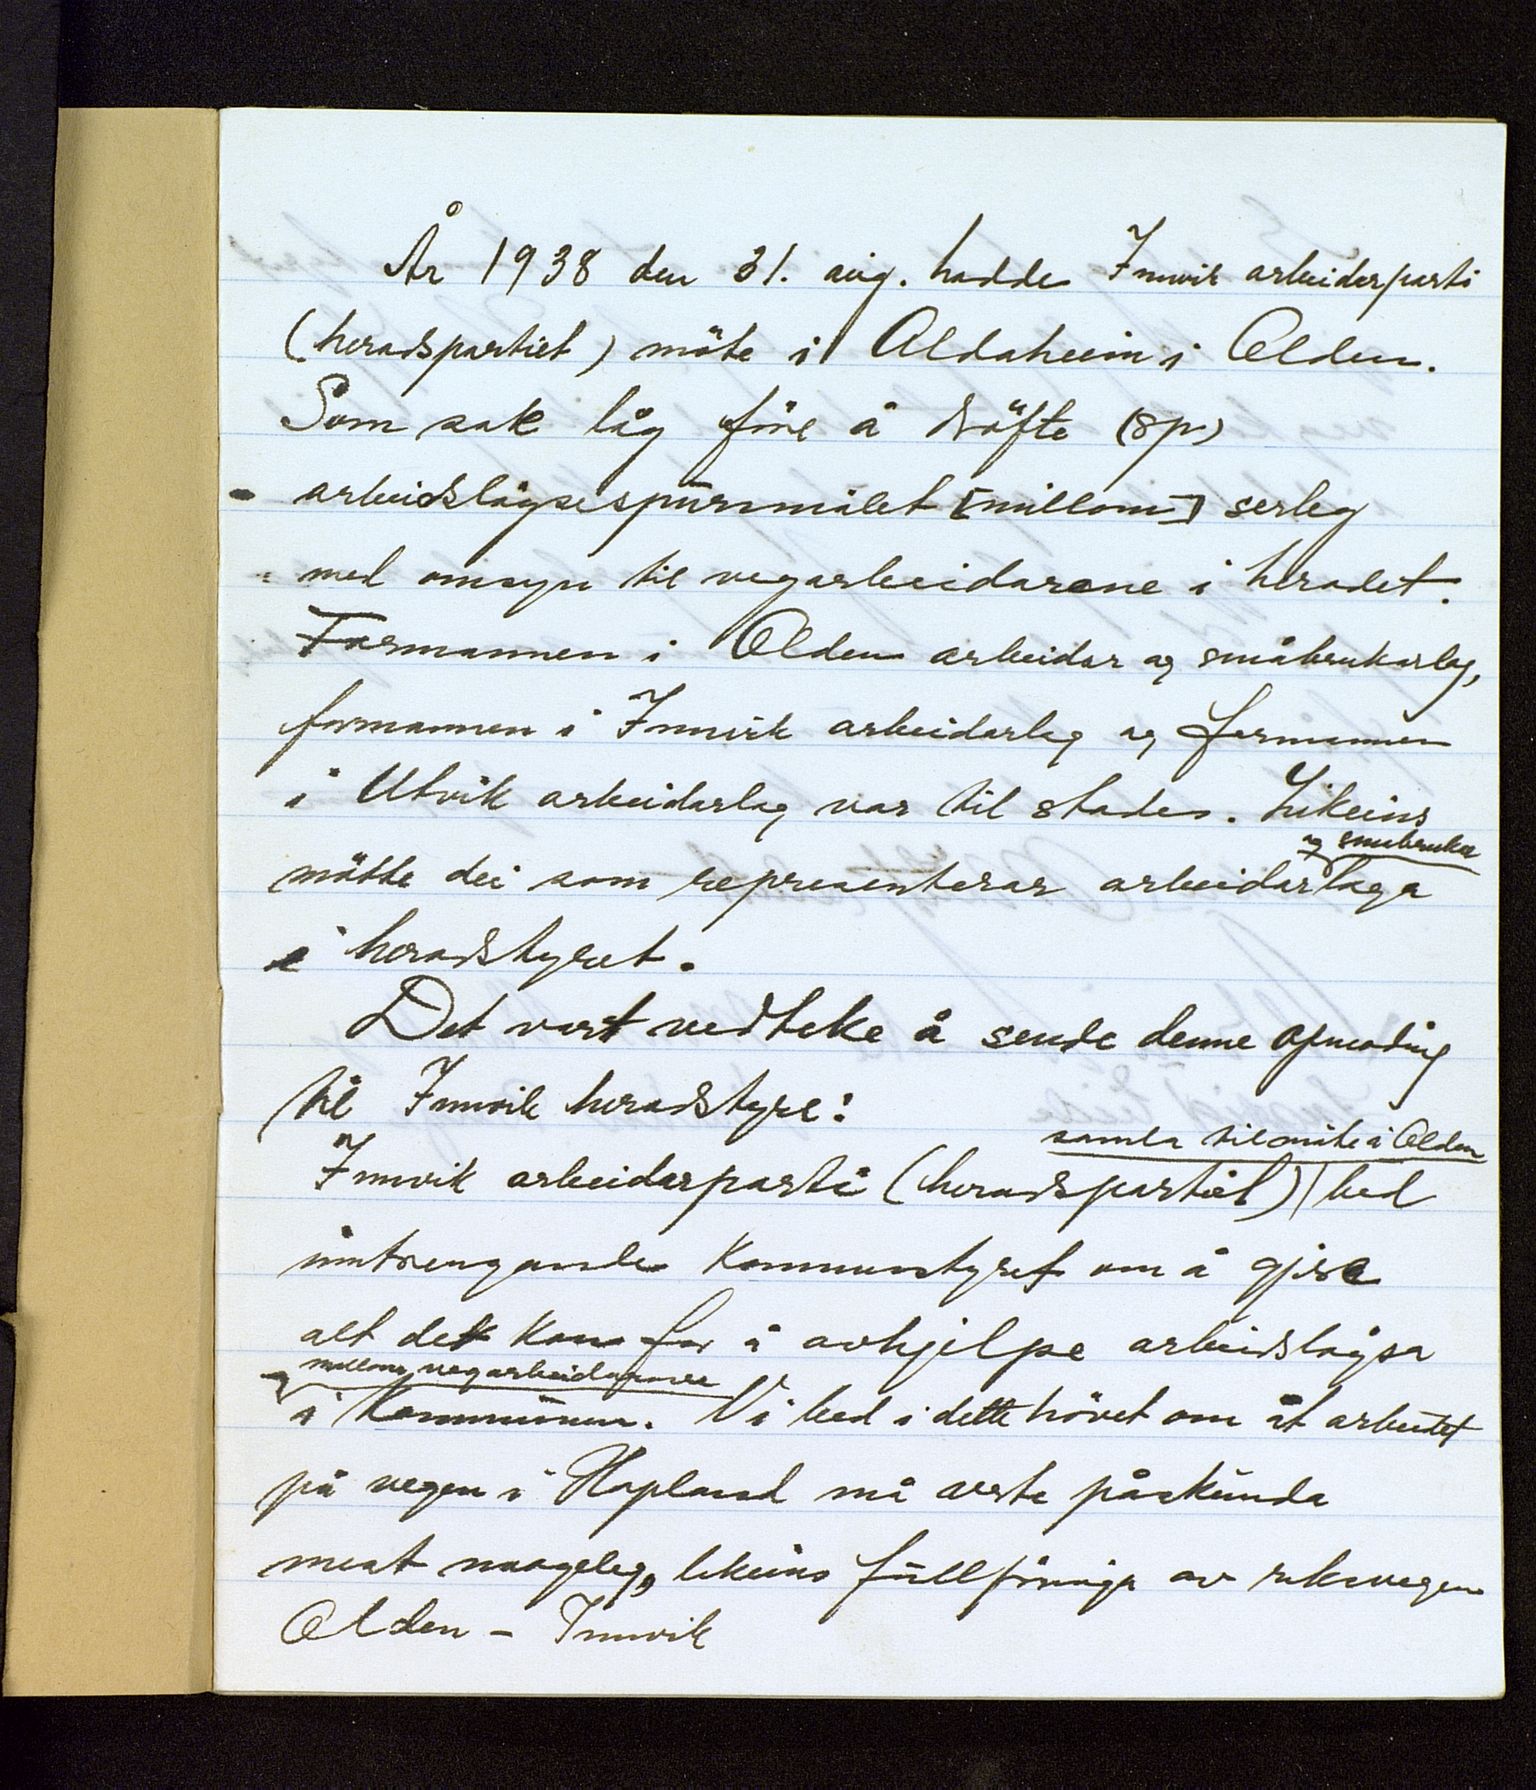 År 1938 den 31. aug. hadde Innvik arbeidarparti
(heradspartiet) möte i Aldaheim i Olden.
Som sak låg före å dröfte (sp)
arbeidslöysespursmålet [millom] serleg
med omsyn til vegarbeidarane i heradet.
Formannen i Olden arbeidar og småbrukarlag,
formannen i Innvik arbeidarlag og formannen
i Utvik arbeidarlag var til stades. Likeins
og småbrukar
mötte dei som representerar arbeidarlaga
i heradstyret.
Det vart vedteke å sende denne opmoding
til Innvik heradstyre:
samla til möte i Olden
Innvik arbeidarparti (heradspartiet) bed
inntrengande kommunstyret om å gjera
alt det kan for å avhjelpe arbeidsløysa
millom vegarbeidarane
i kommunen. Vi bed i dette hövet om at arbeidet
på vegen i Hopland må verte påskunda
mest mogeleg, likeins fullföringa av riksvegen
Olden - Innvik